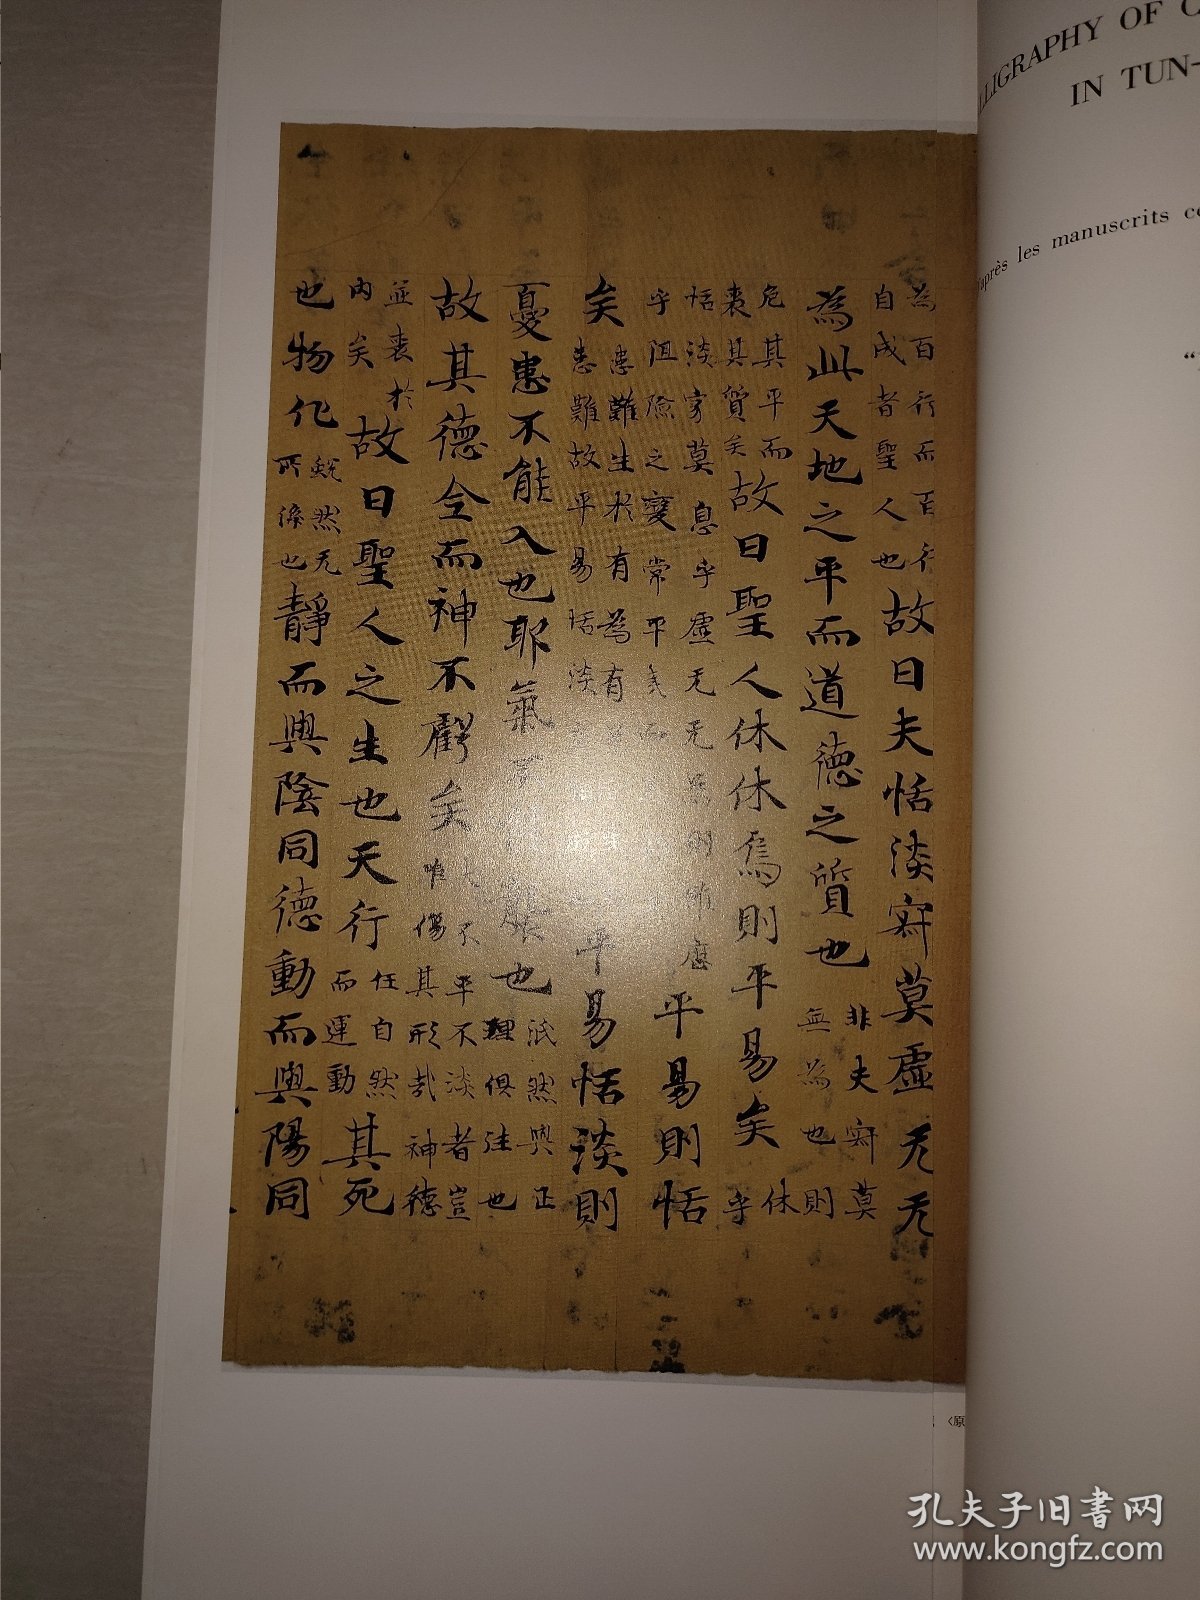 為百行而百行
自成者聖人也
故曰夫恬淡寂莫虛无无
為此天地之平而道德之質也
非夫寂莫
無為也則
危其平而
喪其質矣
故曰聖人休休焉則平易矣
休
乎
恬淡寂莫息乎虛无无為
乎阻險之變常平夷而
平易則恬
矣
患難生於有為有
患難故平易恬淡
平易恬淡則
憂患不能入也耶氣不能襲也
泯然與正
理俱往也
故其德全而神不虧矣
夫不平不淡者豈
唯傷其形哉神德
並喪於
內矣
故曰聖人之生也天行
任自然
而運動
其死
也物化
蛻然无
所係也
靜而與陰同德動而與陽同
LLIGRAPHY OF C
IN TUN-
après les manuscrits co
〈原
孔夫子旧书网
www.kongfz.com